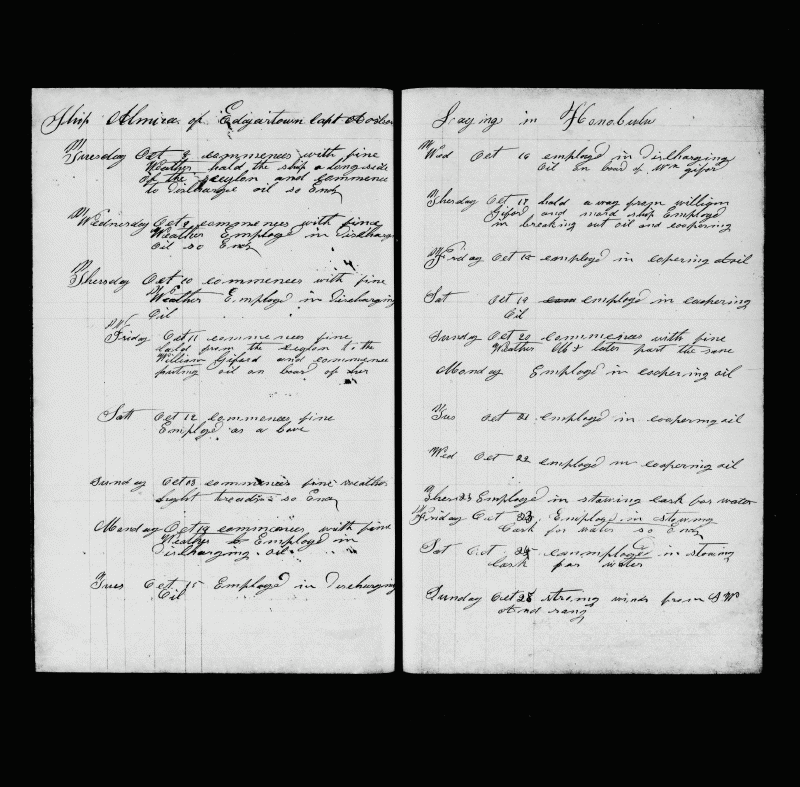 Ship Almira of Edgartown Capt
Tuesday Oct 8 commences with fine
Weather hald the ship a longside
of the ceylon and commence
to discharge oil so Ends
Wednesday Oct 9 commences with fine
Weather Employd in discharg
Oil so Ends
Thersday Oct 10 commences with fine
Weather Employd in discharging
Oil
Friday Oct 11 commences fine
hald from the ceylon to the
William Giford and commence
puting oil on board of her
Satt Oct 12 commences fine
Employd as a bove
Sunday Oct 13 commences fine weather
light so Ends
Monday Oct 14 commences with fine
Weather Employd in
discharging oil
Tues Oct 15 Employd in discharging
Oil
Laying in Honolulu
Wed Oct 16 employd in discharging
Oil on board of Wm gifor
Thersday Oct 17 hald a way from william
Giford and mord ship Employd
in breaking out oil and coopering
Friday Oct 18 employd in copering oil
Sat Oct 19 employd in coopering
Oil
Sunday Oct 20 commences with fine
Weather later part the same
Monday Employd in coopering oil
Tus Oct 21 employd in coopering oil
Wed Oct 22 employd in coopering oil
Thersd Employd in stowing cask for water
Friday Oct Employd in stowing
Cask for water so Ends
Sat Oct employd in stowing
Cask for water
Sunday Oct strong winds from S W
And rany